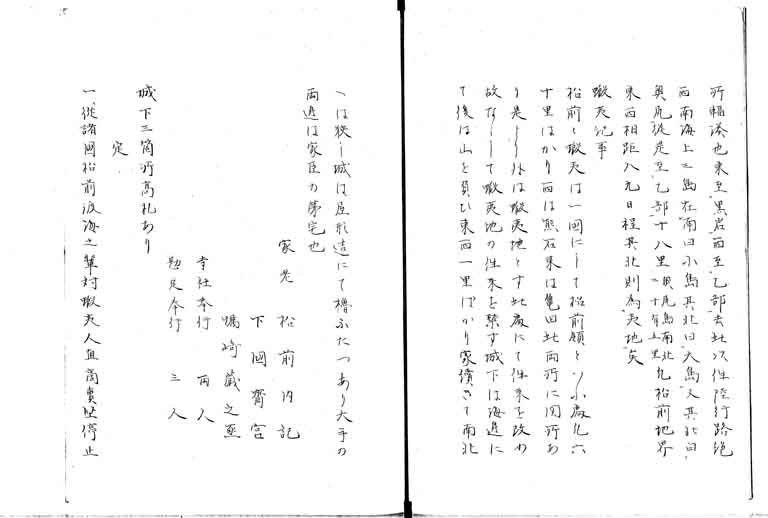 所輻湊也東至黒岩西至乙部去此以往陸行路絶
西南海上三島在南曰小島其北曰大島又其北曰
奥尻従是至乙部十八里奥尻島南北二十有五里凡松前地界
東西相距八九日程其北則為夷地矣
蝦夷記事
松前ハ蝦夷は一国にして松前領といふ處凡六
十里はかり西は熊石東は亀田此両所に関所あ
り是より外は蝦夷地とす此處にて往来を改め
故なくして蝦夷地の往来を禁す城下は海辺に
て後は山を負ひ東西一里ばかり家續きて南北
へは狭し城は屋形造にて櫓ふたつあり大手の
両辺は家臣の第宅也
家老 松前内記
下國齊宮
蠣崎蔵之丞
寺社奉行 両人
勘定奉行 三人
城下三箇所高札あり
定
一、従諸國松前渡海之輩対蝦夷人直商賣堅停止